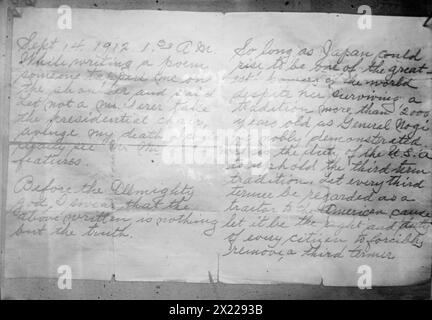 Sept 14. 1912 1.30 A.M.
While writing a poem
someone tapped me on
the shoulder and said
Let not a murderer take
the presidential chair,
avenge my death
features
Before the Almighty
God, I swear that the
above written is nothing
but the truth.
So long as Japan could
rise to be one of the great-
est powers of the world
despite her surviving a
tradition more than 2000
years old as General Nogi
nobly demonstrated
it is the duty of the U.S.A
to uphold the third term
tradition. Let every third
termer be regarded as a
traitor to the American cause
let it be the right and duty
of every citizen to forcibly
remove a third termer
alamy
Image ID: 2W2293B
www.alamy.com